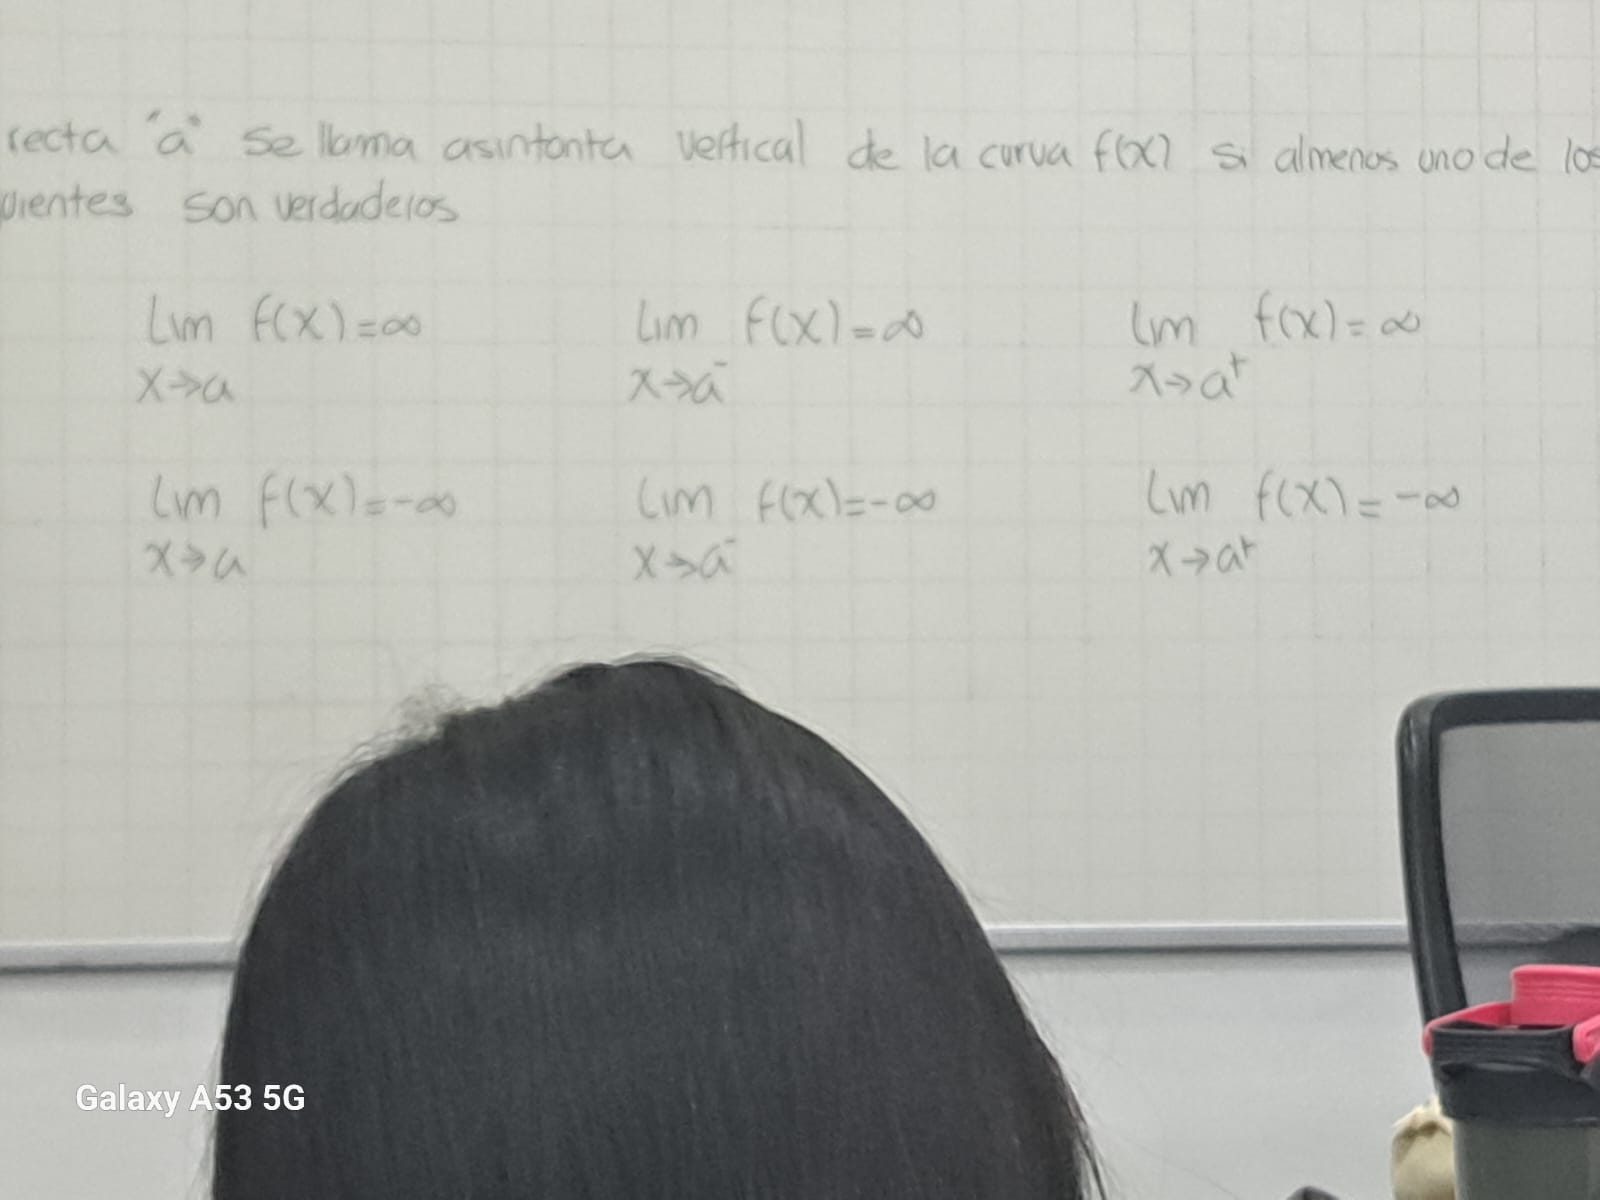 recta "a" se llama asintonta vertical de la curva f(x) si almenos uno de los
uientes son verdaderos
lim f(x)=∞ lim f(x)=∞ lim f(x)=∞
x→a x→a⁻ x→a⁺
lim f(x)=-∞ lim f(x)=-∞ lim f(x)=-∞
x→a x→a⁻ x→a⁺
Galaxy A53 5G